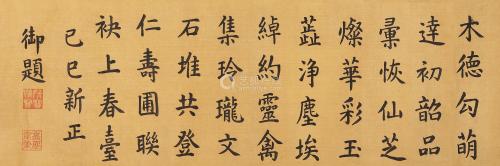 木德勾萌
逹初韶品
彚恢仙芝
燦華彩玉
蕋淨塵埃
綽約靈禽
集玲瓏文
石堆共登
仁壽圃聯
袂上春臺
己巳新正
御題